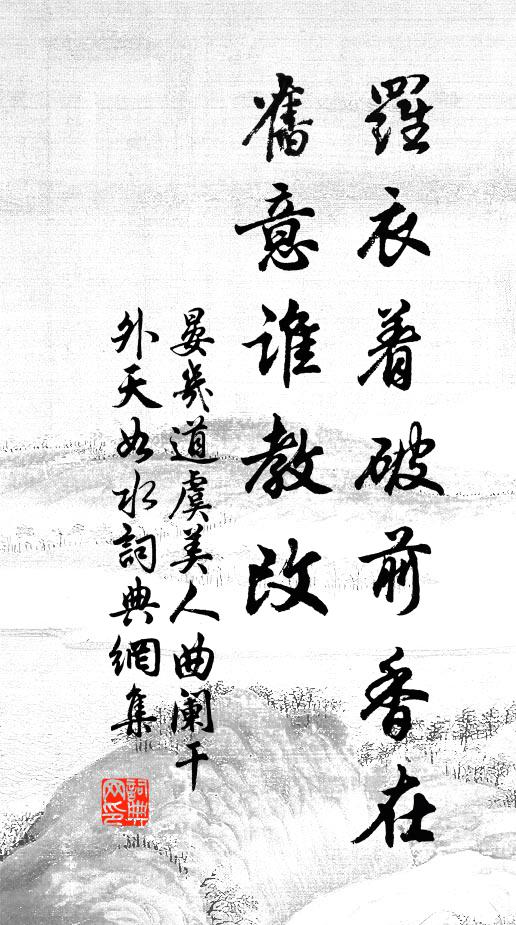 羅衣着破前香在
舊意誰教改
晏幾道虞美人曲闌干
外天如水詞典網集
詞典网印